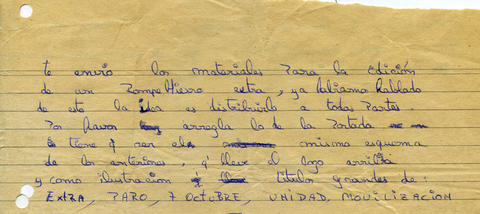 te envio los materiales para la edición
de un Rompe Hierro extra, ya habíamo hablado
de esto la idea es distribuirlo a todas partes.
Por favor arregla lo de la Portada
tiene q ser el mismo esquema
de los anteriores, q' lleve el logo arriba
y como ilustracion titulos grandes de:
EXTRA, PARO, 7 OCTUBRE, UNIDAD, MOVILIZACION